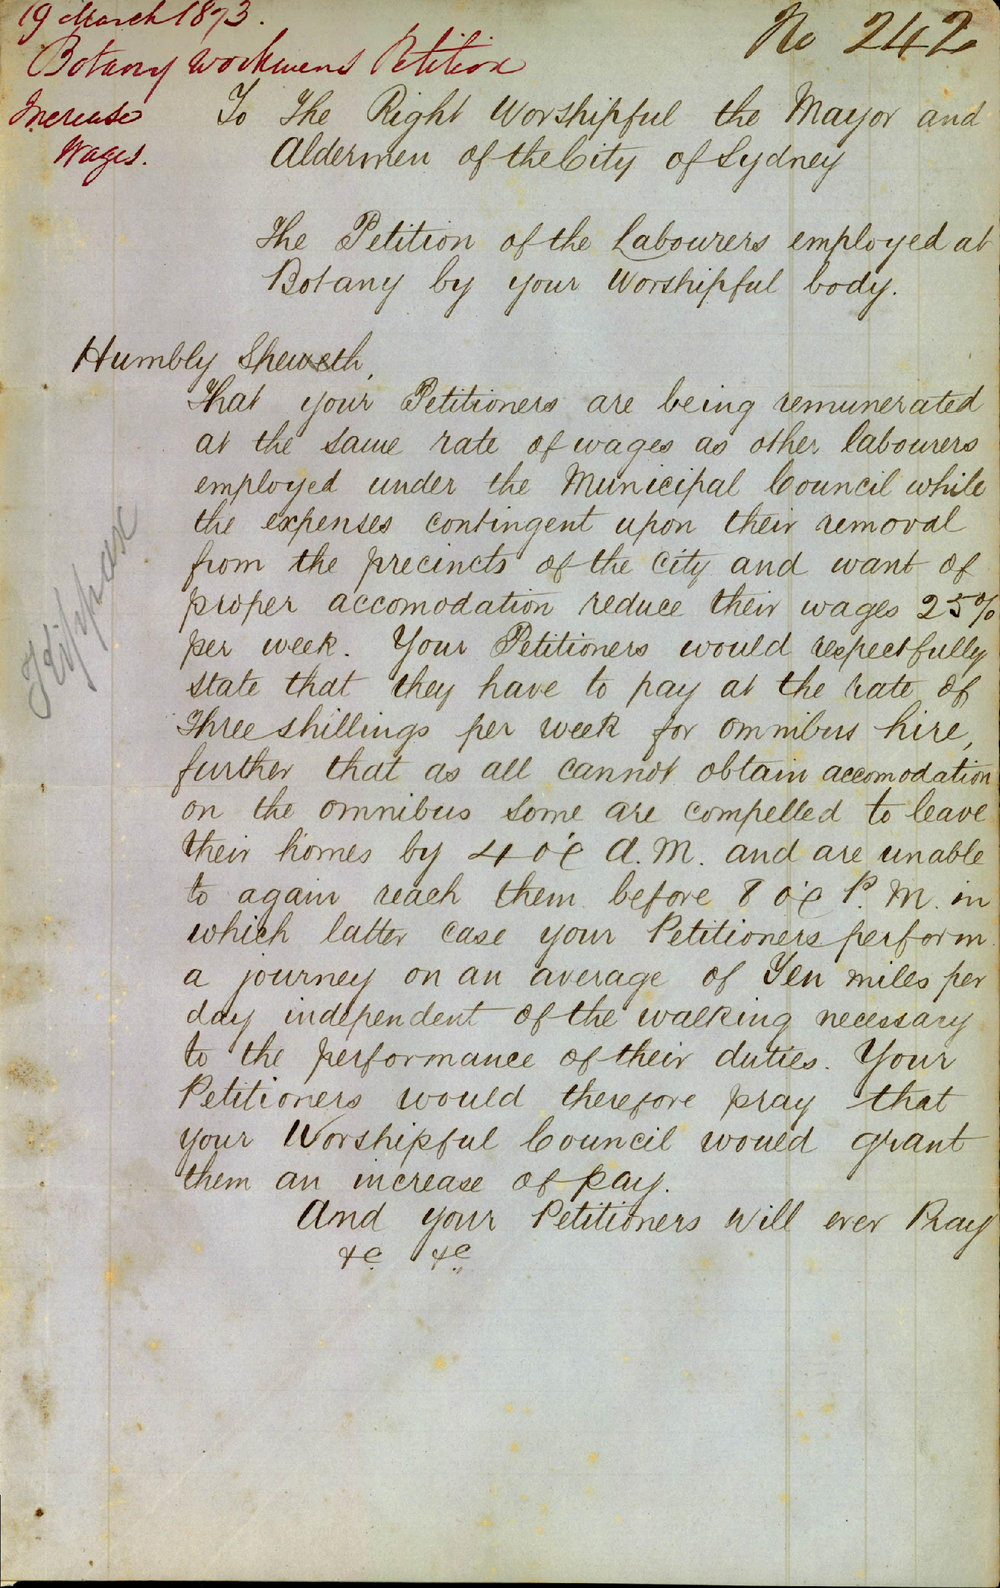 19 March 1873.
No 242
Botany Workmens Petition
Increase
Wages.
To The Right Worshipful the Mayor and
Aldermen of the City of Sydney
The Petition of the Labourers employed at
Botany by your Worshipful body.
Humbly Sheweth,
That your Petitioners are being remunerated
at the same rate of wages as other labourers
employed under the Municipal Council while
the expenses contingent upon their removal
from the precincts of the City and want of
proper accomodation reduce their wages 25%
per week. Your Petitioners would respectfully
state that they have to pay at the rate of
Three shillings per week for omnibus hire,
further that as all cannot obtain accomodation
on the omnibus some are compelled to leave
their homes by 4 o'c A.M. and are unable
to again reach them before 8 o'c P.M. in
which latter case your Petitioners perform
a journey on an average of Ten miles per
day independent of the walking necessary
to the performance of their duties. Your
Petitioners would therefore pray that
your Worshipful Council would grant
them an increase of pay.
And your Petitioners will ever Pray
&c &c
Kippax